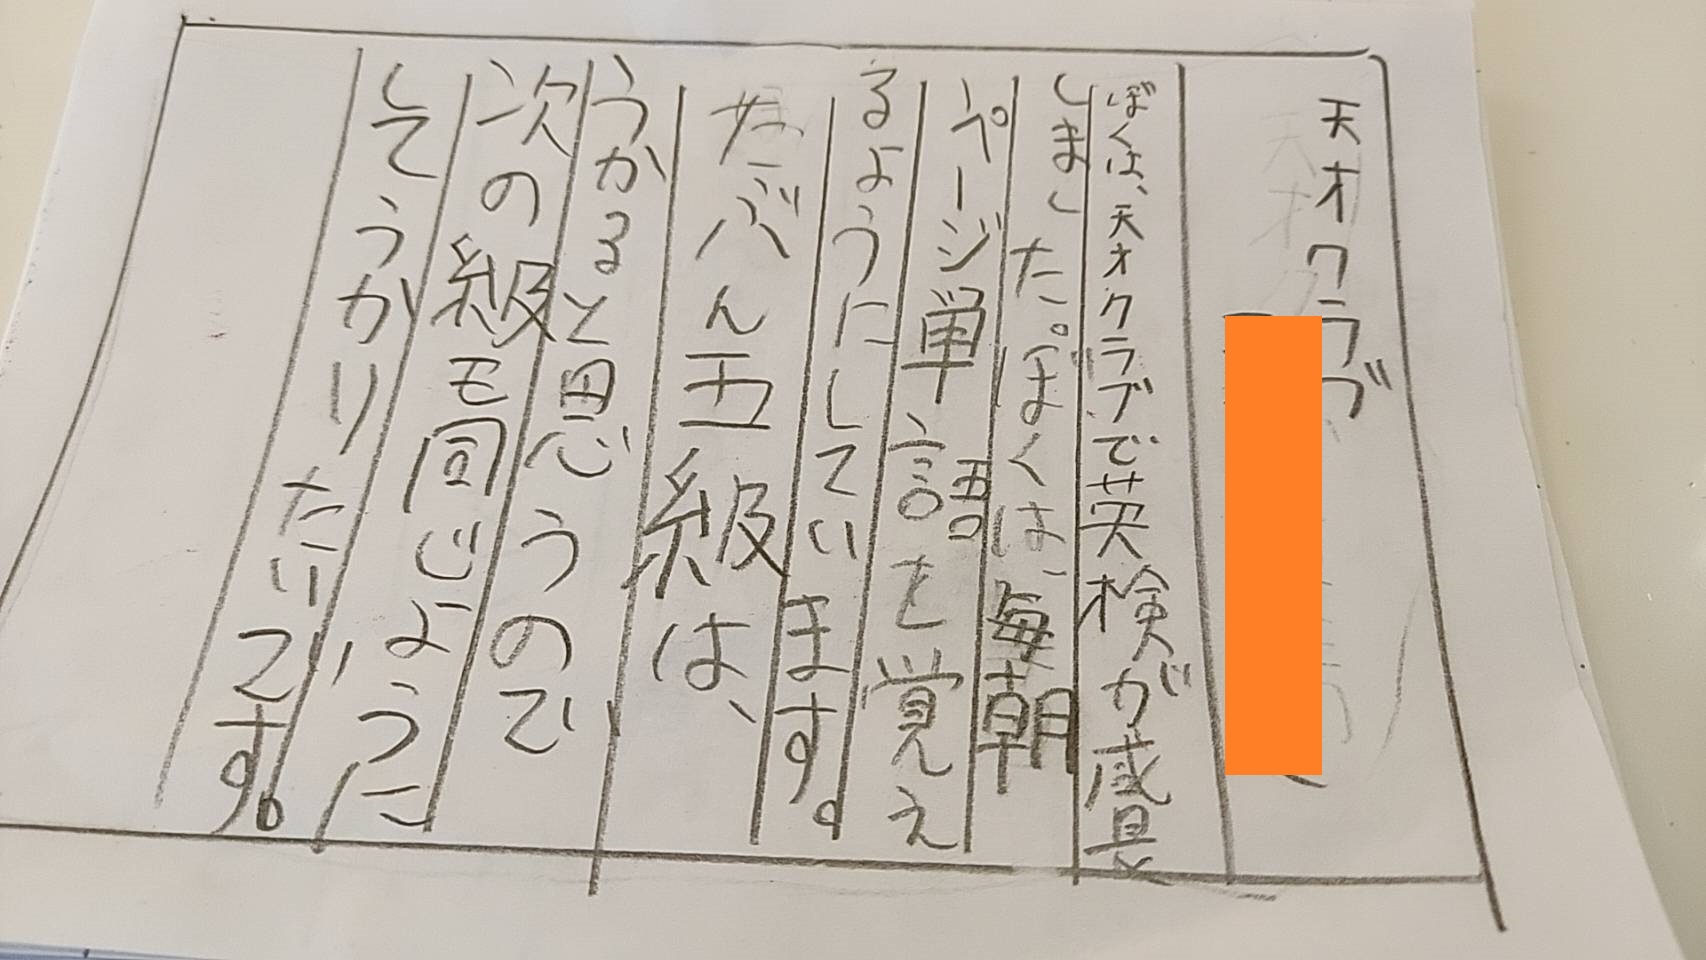 天才クラブ
ぼくは、天才クラブで英検が成長
しました。ぼくは、毎朝
ページ単語を覚え
るようにしています。
たぶん五級は、
うかると思うので
次の級モ同じように
してうかりたいです。